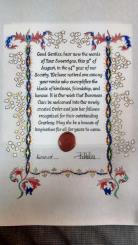 Good Gentles, hear now the words
of Your Sovereigns, this 31st of
August, in the 49th year of our
Society. We have noticed one among
your ranks who exemplifies the
ideals of kindness, friendship, and
honour. It is Our wish that
Clare be welcomed into Our newly
created Order and join her fellows
recognized for their outstanding
Courtesy. May she be a beacon of
inspiration for all for years to come.